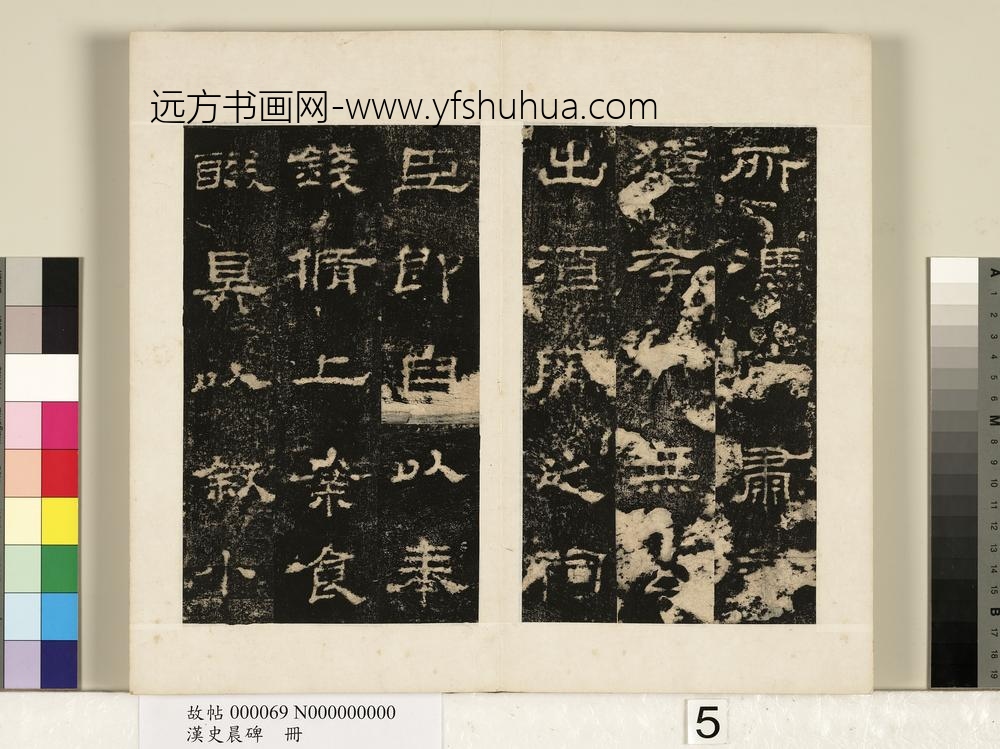 远方书画网-www.yfshuhua.com
所馮肅
猶存無
出酒脯之祠
臣即自以奉
錢脩上案食
醊具以叙小
故帖 000069 N000000000
漢史晨碑 冊
5
A 1 2 3 4 5 6 M 8 9 10 11 12 13 14 15 B 17 18 19